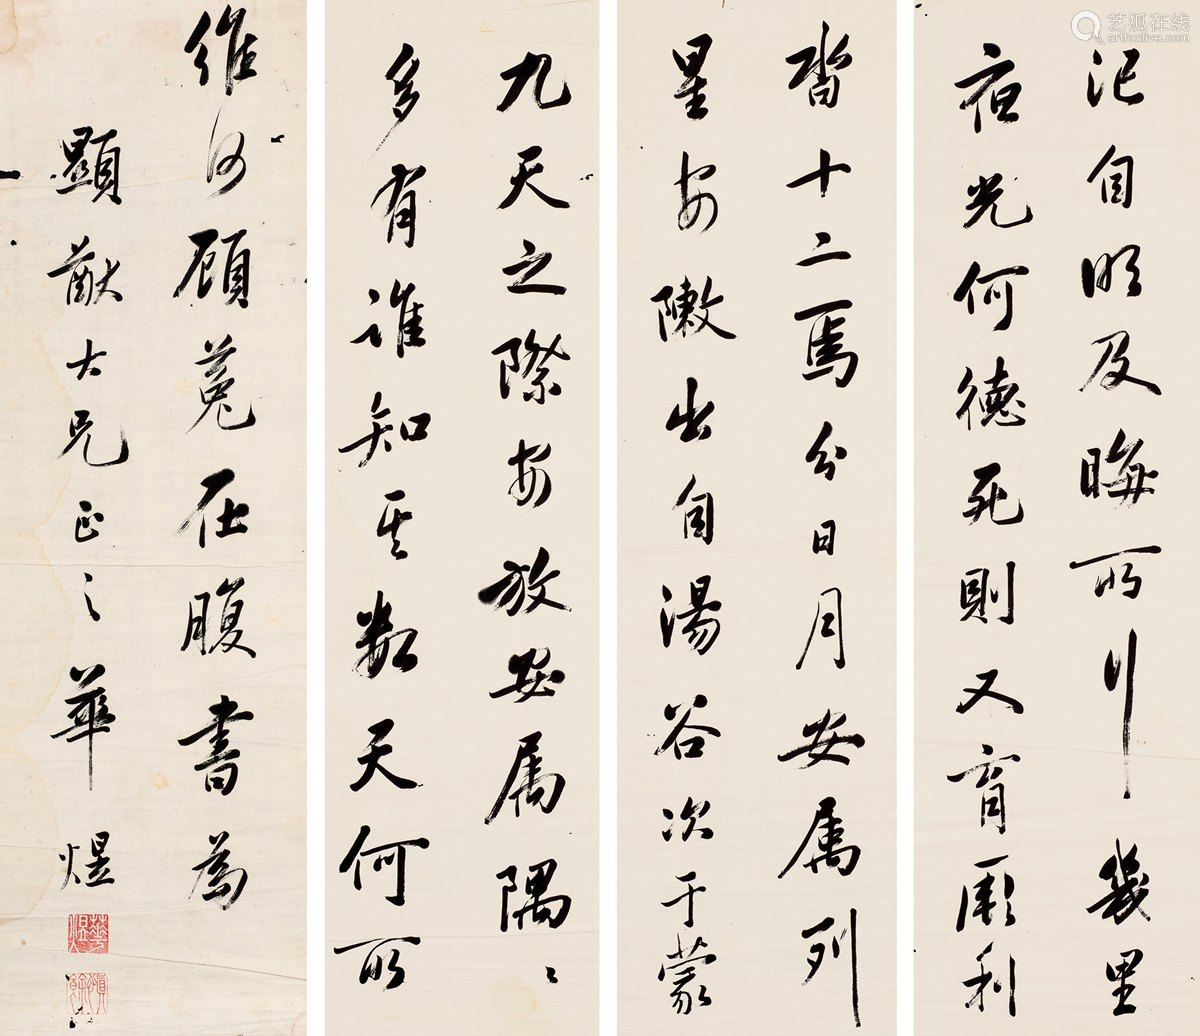 汜自明及晦所行幾里
夜光何德死則又育厥利
沓十二焉分日月安屬列
星安敶出自湯谷次于蒙
九天之際安放安屬隅〻
多有誰知其數天何所
維何顧菟在腹書為
顯猷大兄正之 華煜
艺狐在线
artfoxlive.com